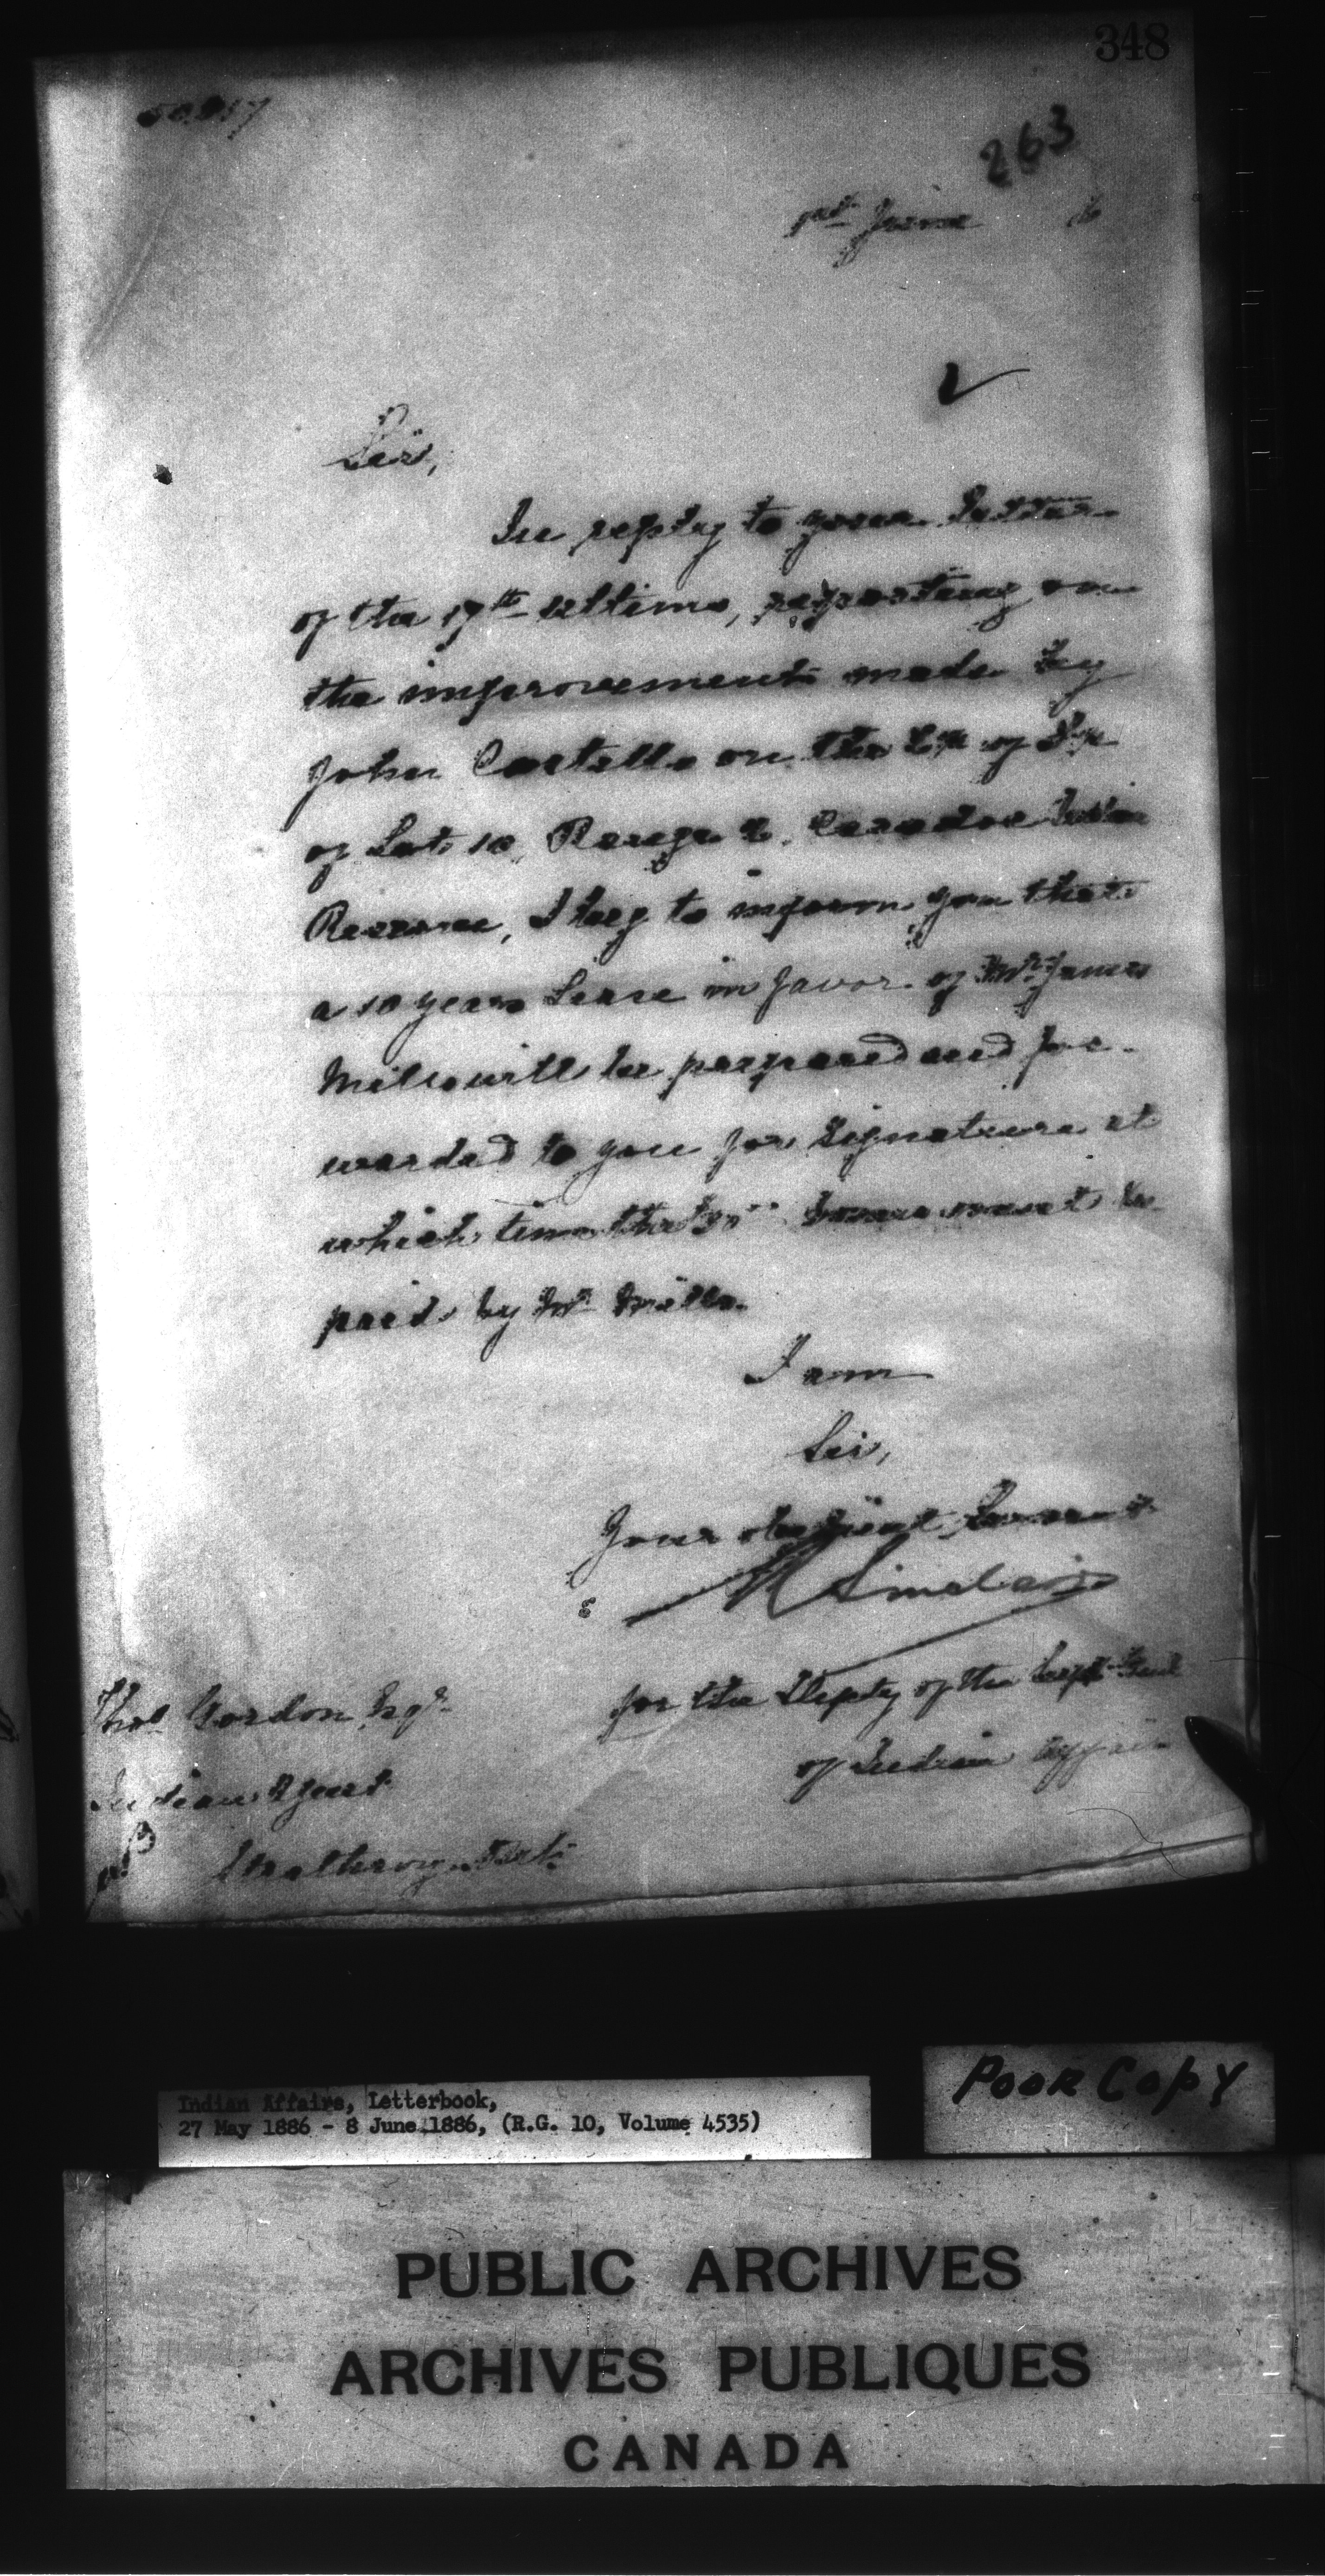 348
263
1st June 6
Sir,
In reply to your Letter
of the 17th ultimo, reporting on
the improvements made by
John Costello on the of
of Lot 10, Range 2, Caradoc Indian
Reserve, I beg to inform you that
a 10 years Lease in favor of Mr James
Mills will be prepared and for-
warded to you for signature at
which time the must be
paid by Mr Mills.
I am
Sir,
Your obedient Servant
Sinclair
for the Depty of the Supt Genl
of Indian Affairs
Thos Gordon Esqr
Indian Agent
Strathroy Ont:
Indian Affairs, Letterbook,
27 May 1886 - 8 June 1886, (R.G. 10, Volume 4535)
POOR COPY
PUBLIC ARCHIVES
ARCHIVES PUBLIQUES
CANADA